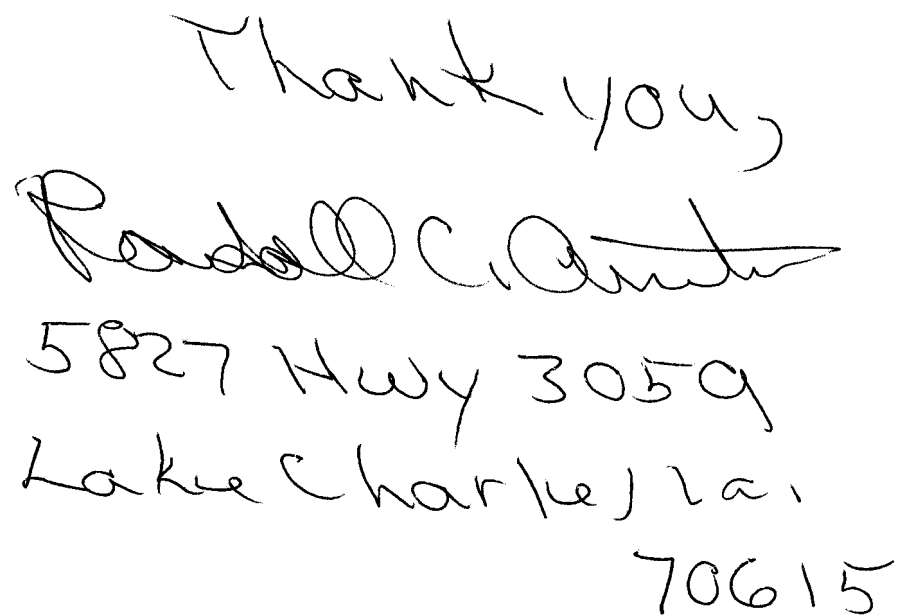 Thank you,
Randall C.
5827 Hwy 3059
Lake Charles La.
70615